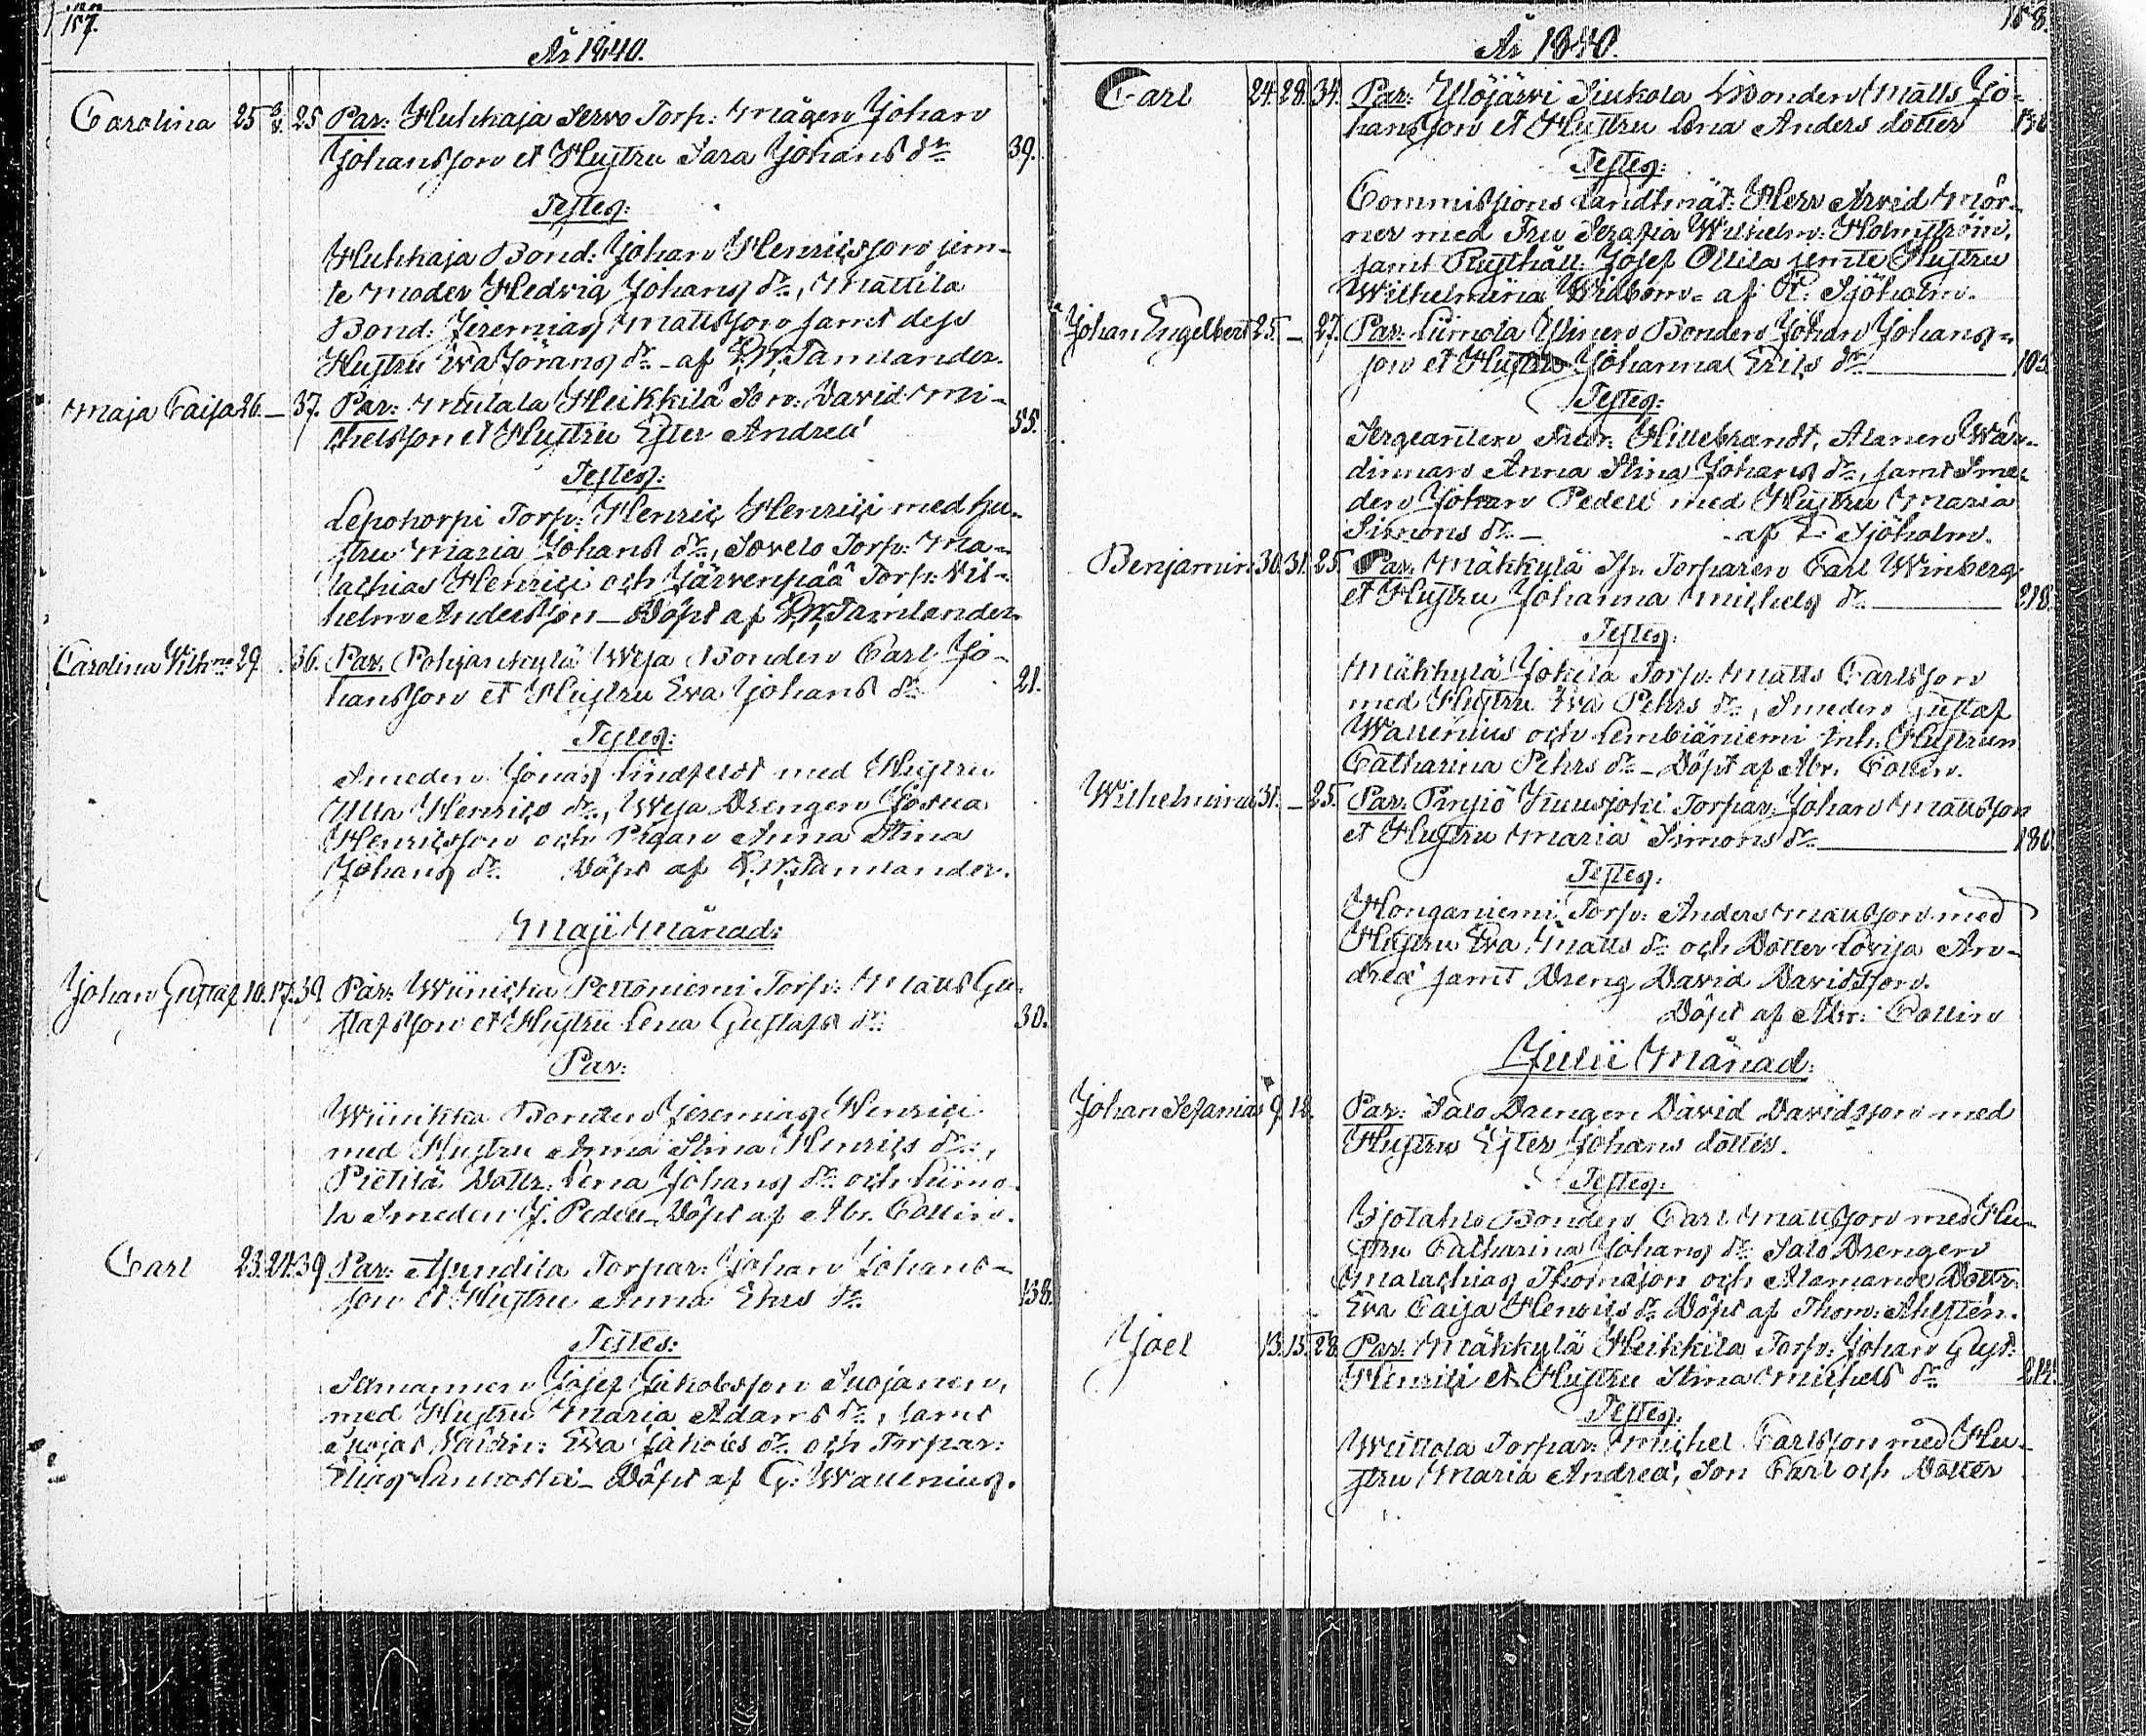 157.
År 1840.
Carolina 25 3/5. 25 Par: Huhkaja Servo Torp: Mågen Johan
Johansson et Hustru Sara Johans dr 39.
Testes:
Huhkaja Bond: Johan Henricsson jem-
te moder Hedvig Johans dr, Mattila
Bond: Jeremias Mattsson samt dess
Hustru Eva Jörans dr - af Tamlander.
Maja Caisa 26. — 37. Par: Mutala Heikkilä Son: David Mi-
chelsson et Hustru Ester Andreæ 55.
Testes:
Lepokorpi Torp: Henric Henrici med Hu-
stru Maria Johans dr, Sovelo Torp: Ma-
lachias Henrici och Järvenpää Torp: Vil-
helm Andersson — Döpt af Tamlander
Carolina Vilhna 29. 36. Par: Pohjankylä Weja Bonden Carl Jo-
hansson et Hustru Eva Johans dr 21.
Testes:
Smeden Jonas Lindfeldt med Hustru
Ulla Henrics dr, Weja Drengen Josua
Henricsson och Pigan Anna Stina
Johans dr Döpt af Tamlander.
Maji Månad:
Johan Gustaf 10. 17. 39. Par: Wiinicka Peltoniemi Torp: Matts Gu-
stafsson et Hustru Lena Gustafs dr 30.
Par:
Wiinikka Bonden Jeremias Henrici
med Hustru Anna Stina Henrics dr,
Pietilä Dottr. Lena Johans dr och Liimo-
la Smeden J. Pedell. Döpt af Abr. Collin.
Carl 23. 24. 39 Par: Torpar: Johan Johans-
son et Hustru Anna Ehrs dr 138.
Testes:
Josef Jakobsson Suojanen,
med Hustru Maria Adams dr, samt
Eva Jakobs dr och Torpar:
Elias — Döpt af G: Wallenius.
158.
År 1840.
Carl 24. 28. 34. Par: Ylöjärvi Siukola Bonden Matts Jo-
hansson et Hustru Lena Anders dotter
Testes:
Commissions Landtmät: Herr Arvid Mör-
ner med Fru Serafia Wilhelm: Holmström,
samt Rusthåll: Josef Ollila jemte Hustru
Wilhelmina Widbom - af R: Sjöholm.
Johan Engelbert 25. — 27. Par: Liimola Ulinen Bonden Johan Johans-
son et Hustru Johanna Erics dr 105.
Testes:
Sergeanten Fredr: Hillebrandt, Alanen Wär-
dinnan Anna Stina Johans dr, samt Sme-
den Johan Pedell med Hustru Maria
Simons dr — af Sjöholm.
Benjamin 30. 31. 25. Par: Mäkkylä Torparen Carl Winberg
et Hustru Johanna Michels dr 218.
Testes:
Mäkkylä Jokela Torp: Matts Carlsson
med Hustru Eva Pehrs dr, Smeden Gustaf
Wallenius och Lembiäniemi Inh: Hustrun
Catharina Pehrs dr — Döpt af Abr. Collin.
Wilhelmina 31. — 25. Par: Pinsiö Kuusjoki Torpar: Johan Mattsson
et Hustru Maria Simons dr 186.
Testes.
Honganiemi Torp: Anders Mattsson med
Hustru Eva Matts dr och Dotter Lovisa An-
dreæ samt Dreng David Davidsson.
Döpt af Abr: Collin
Julii Månad:
Johan Sefanias 9. 12. Par: Salo Drengen David Davidsson med
Hustru Ester Johans dotter.
Testes:
Bonden Carl Mattsson med Hu-
stru Catharina Johans dr Salo Drengen
Malachias Thomasson och Alamande Dottr:
Eva Caisa Henrics dr Döpt af Thom: Ahlsten.
Joel 13. 15. 28. Par: Mäkkylä Heikkilä Torp: Johan Gust:
Henrici et Hustru Stina Michels dr
Testes.
Torpar: Michel Carlsson med Hu-
stru Maria Andreæ, Son Carl och Dotter